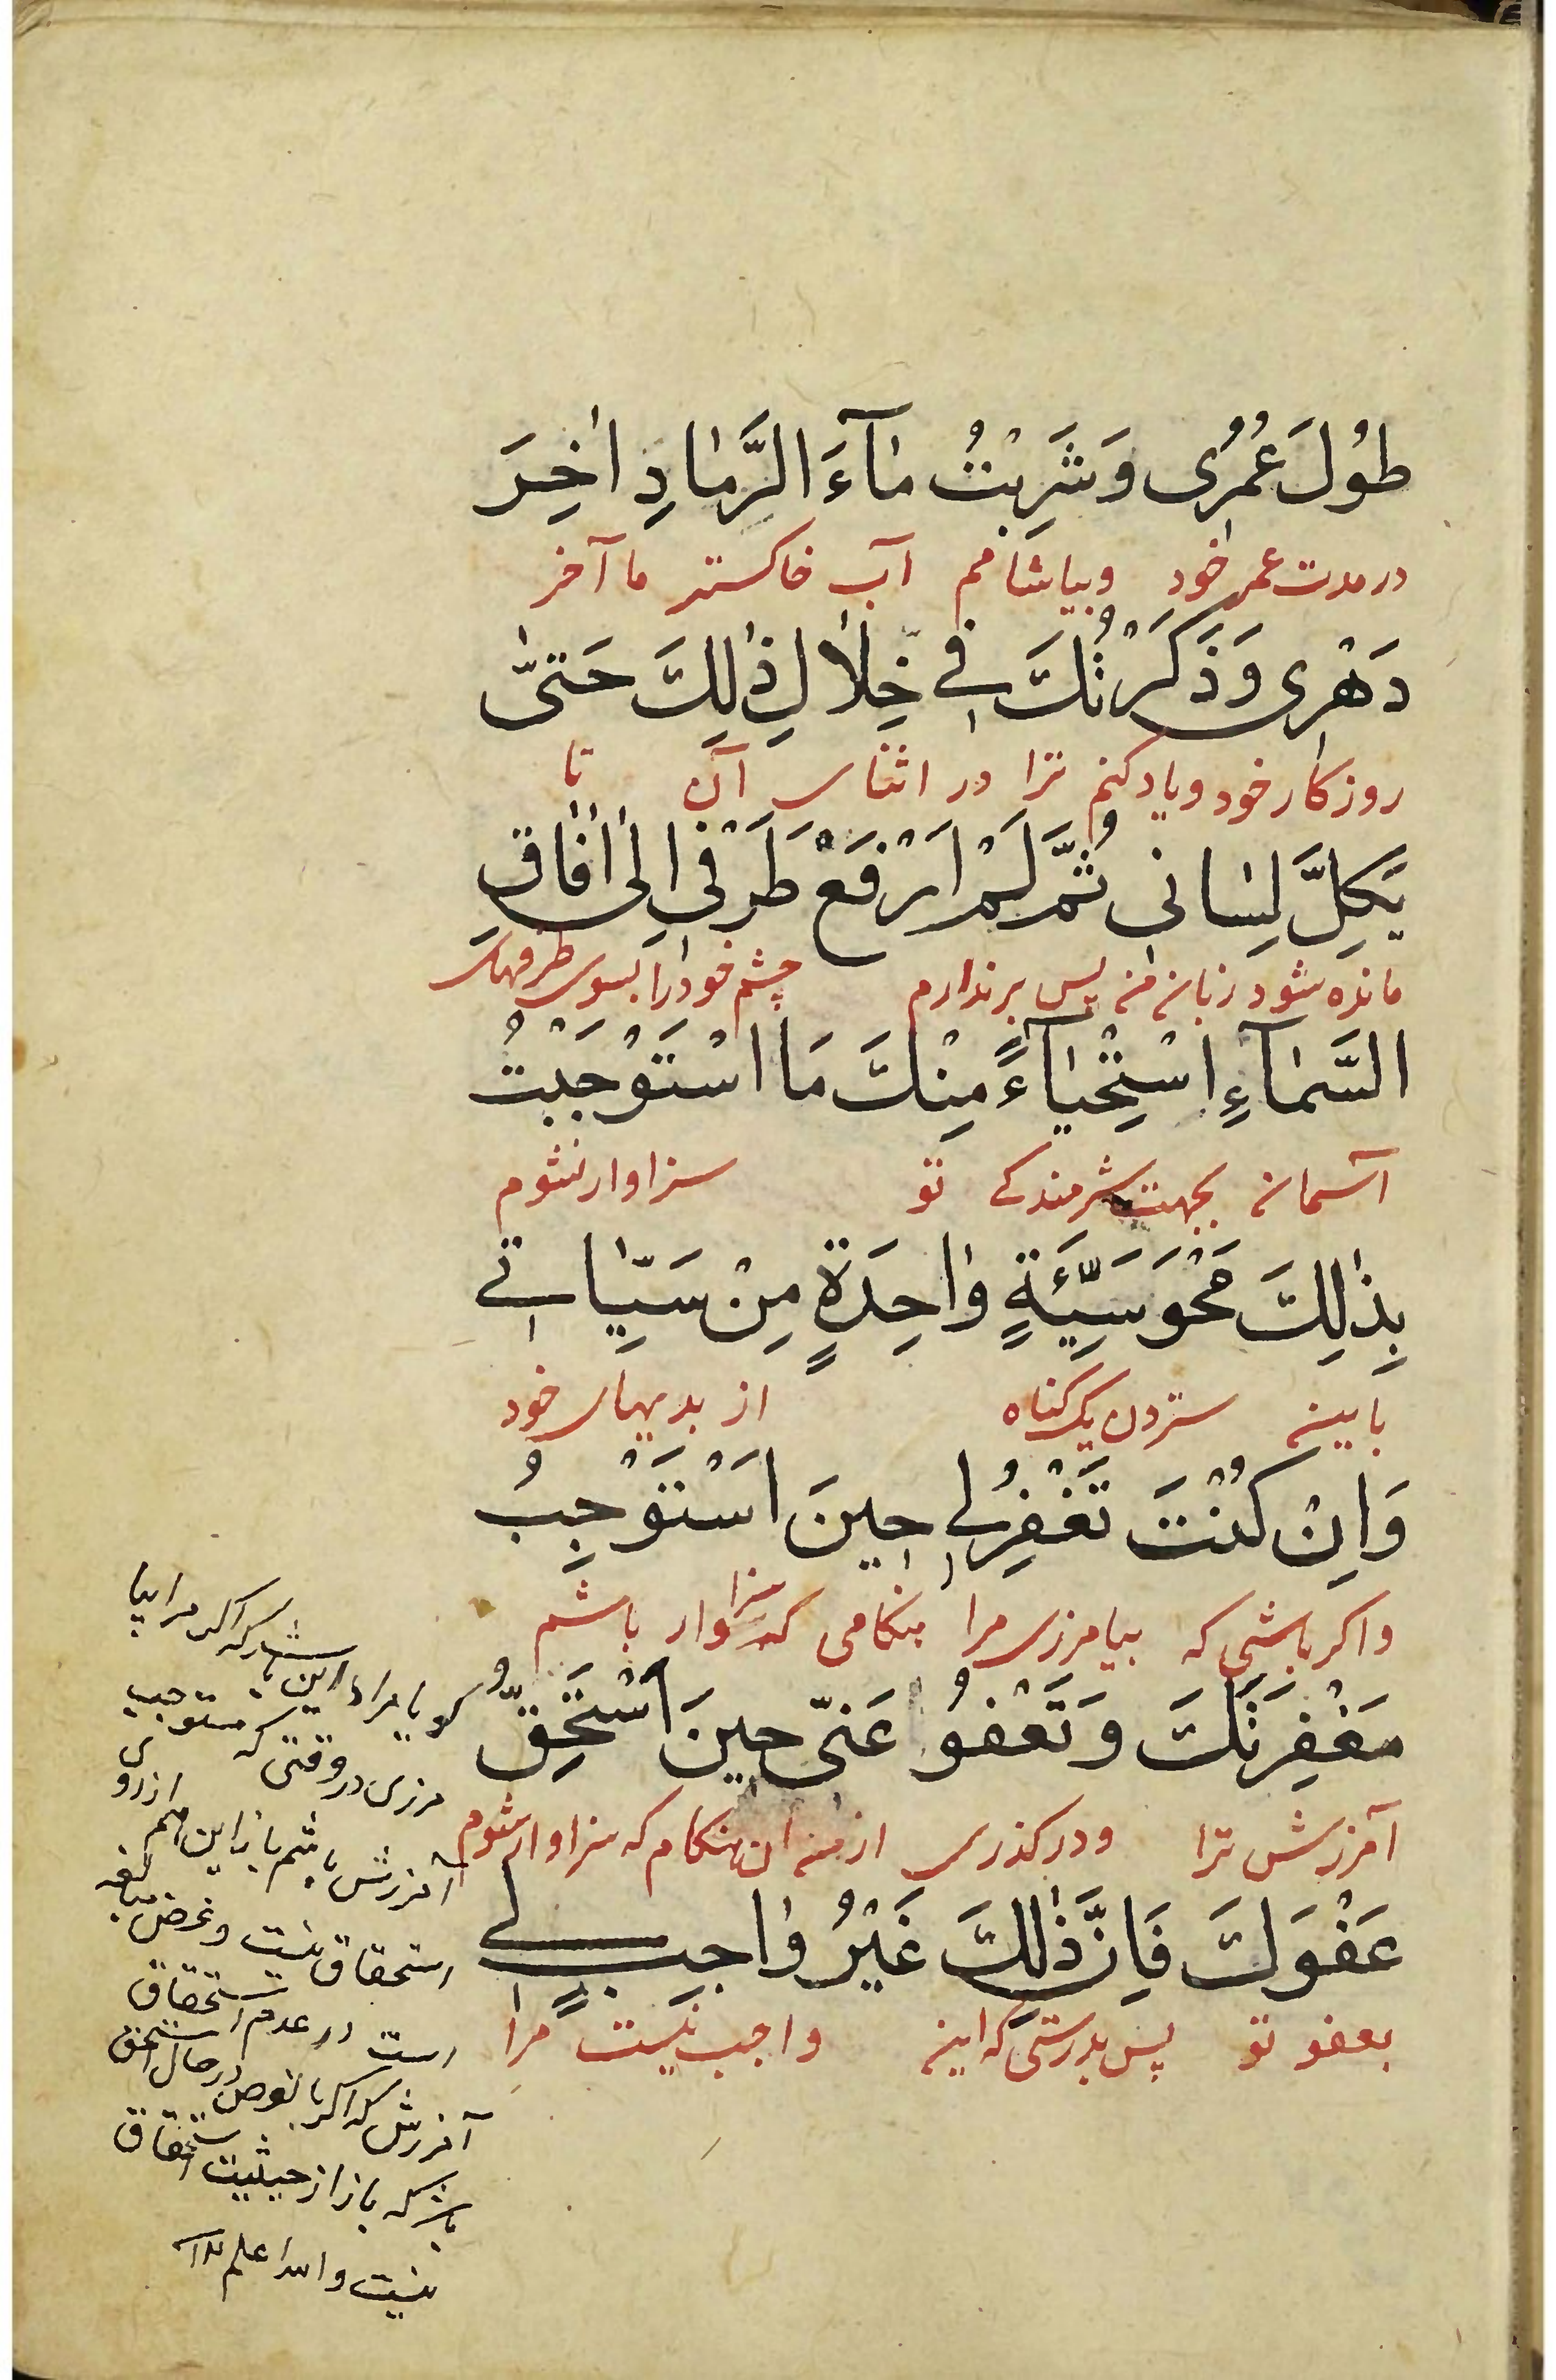 طُولَ عُمُرِی وَشَرِبْتُ مٰآءَ الرَّمٰادِ اٰخِرَ
در مدت عمر خود وبیاشامم آب خاکستر تا آخر
دَهْرِی وَذَكَرْتُكَ فِي خِلٰالِ ذٰلِكَ حَتّیٰ
روزکار خود و یاد کنم ترا در اثنای آن تا
يَكِلَّ لِسٰانِی ثُمَّ لَمْ اَرْفَعْ طَرَفْی اِلٰی اٰفٰاقِ
مانده شود زبان من پس برندارم چشم خود را بسوی طرفهای
السَّمٰآءِ اسْتِحْيٰآءً مِنْكَ مَا اسْتَوْجَبْتُ
آسمان بجهت شرمندکی تو سزاوار نشوم
بِذٰلِكَ مَحْوَ سَيِّئَةٍ وٰاحِدَةٍ مِنْ سَيِّاٰتِی
باین ستردن یک کناه از بدیهای خود
وَاِنْ كُنْتَ تَغْفِرُ لِی حِینَ اَسْتَوْجِبُ
واکر باشی که بیامرزی مرا هنکامی که سزاوار باشم
مَغْفِرَتَكَ وَتَعْفُو عَنّی حِینَ اَسْتَحِقُّ
آمرزش ترا ودرکذری از من ان هنکام که سزاوار شوم
عَفْوَكَ فَاِنَّ ذٰلِكَ غَیْرُ وٰاجِبٍ لِی
بعفو تو پس بدرستی که این واجب نیست مرا
کویا مراد این باشد که اکر مرا بیا
مرزی در وقتی که مستوجب
آمرزش باشم باز این هم از روی
استحقاق نیست وغرض مبالغه
است در عدم استحقاق
آمرزش که اکر بالفرض در حال استحقاق
باشد که باز از حیثیت استحقاق
نیست والله اعلم